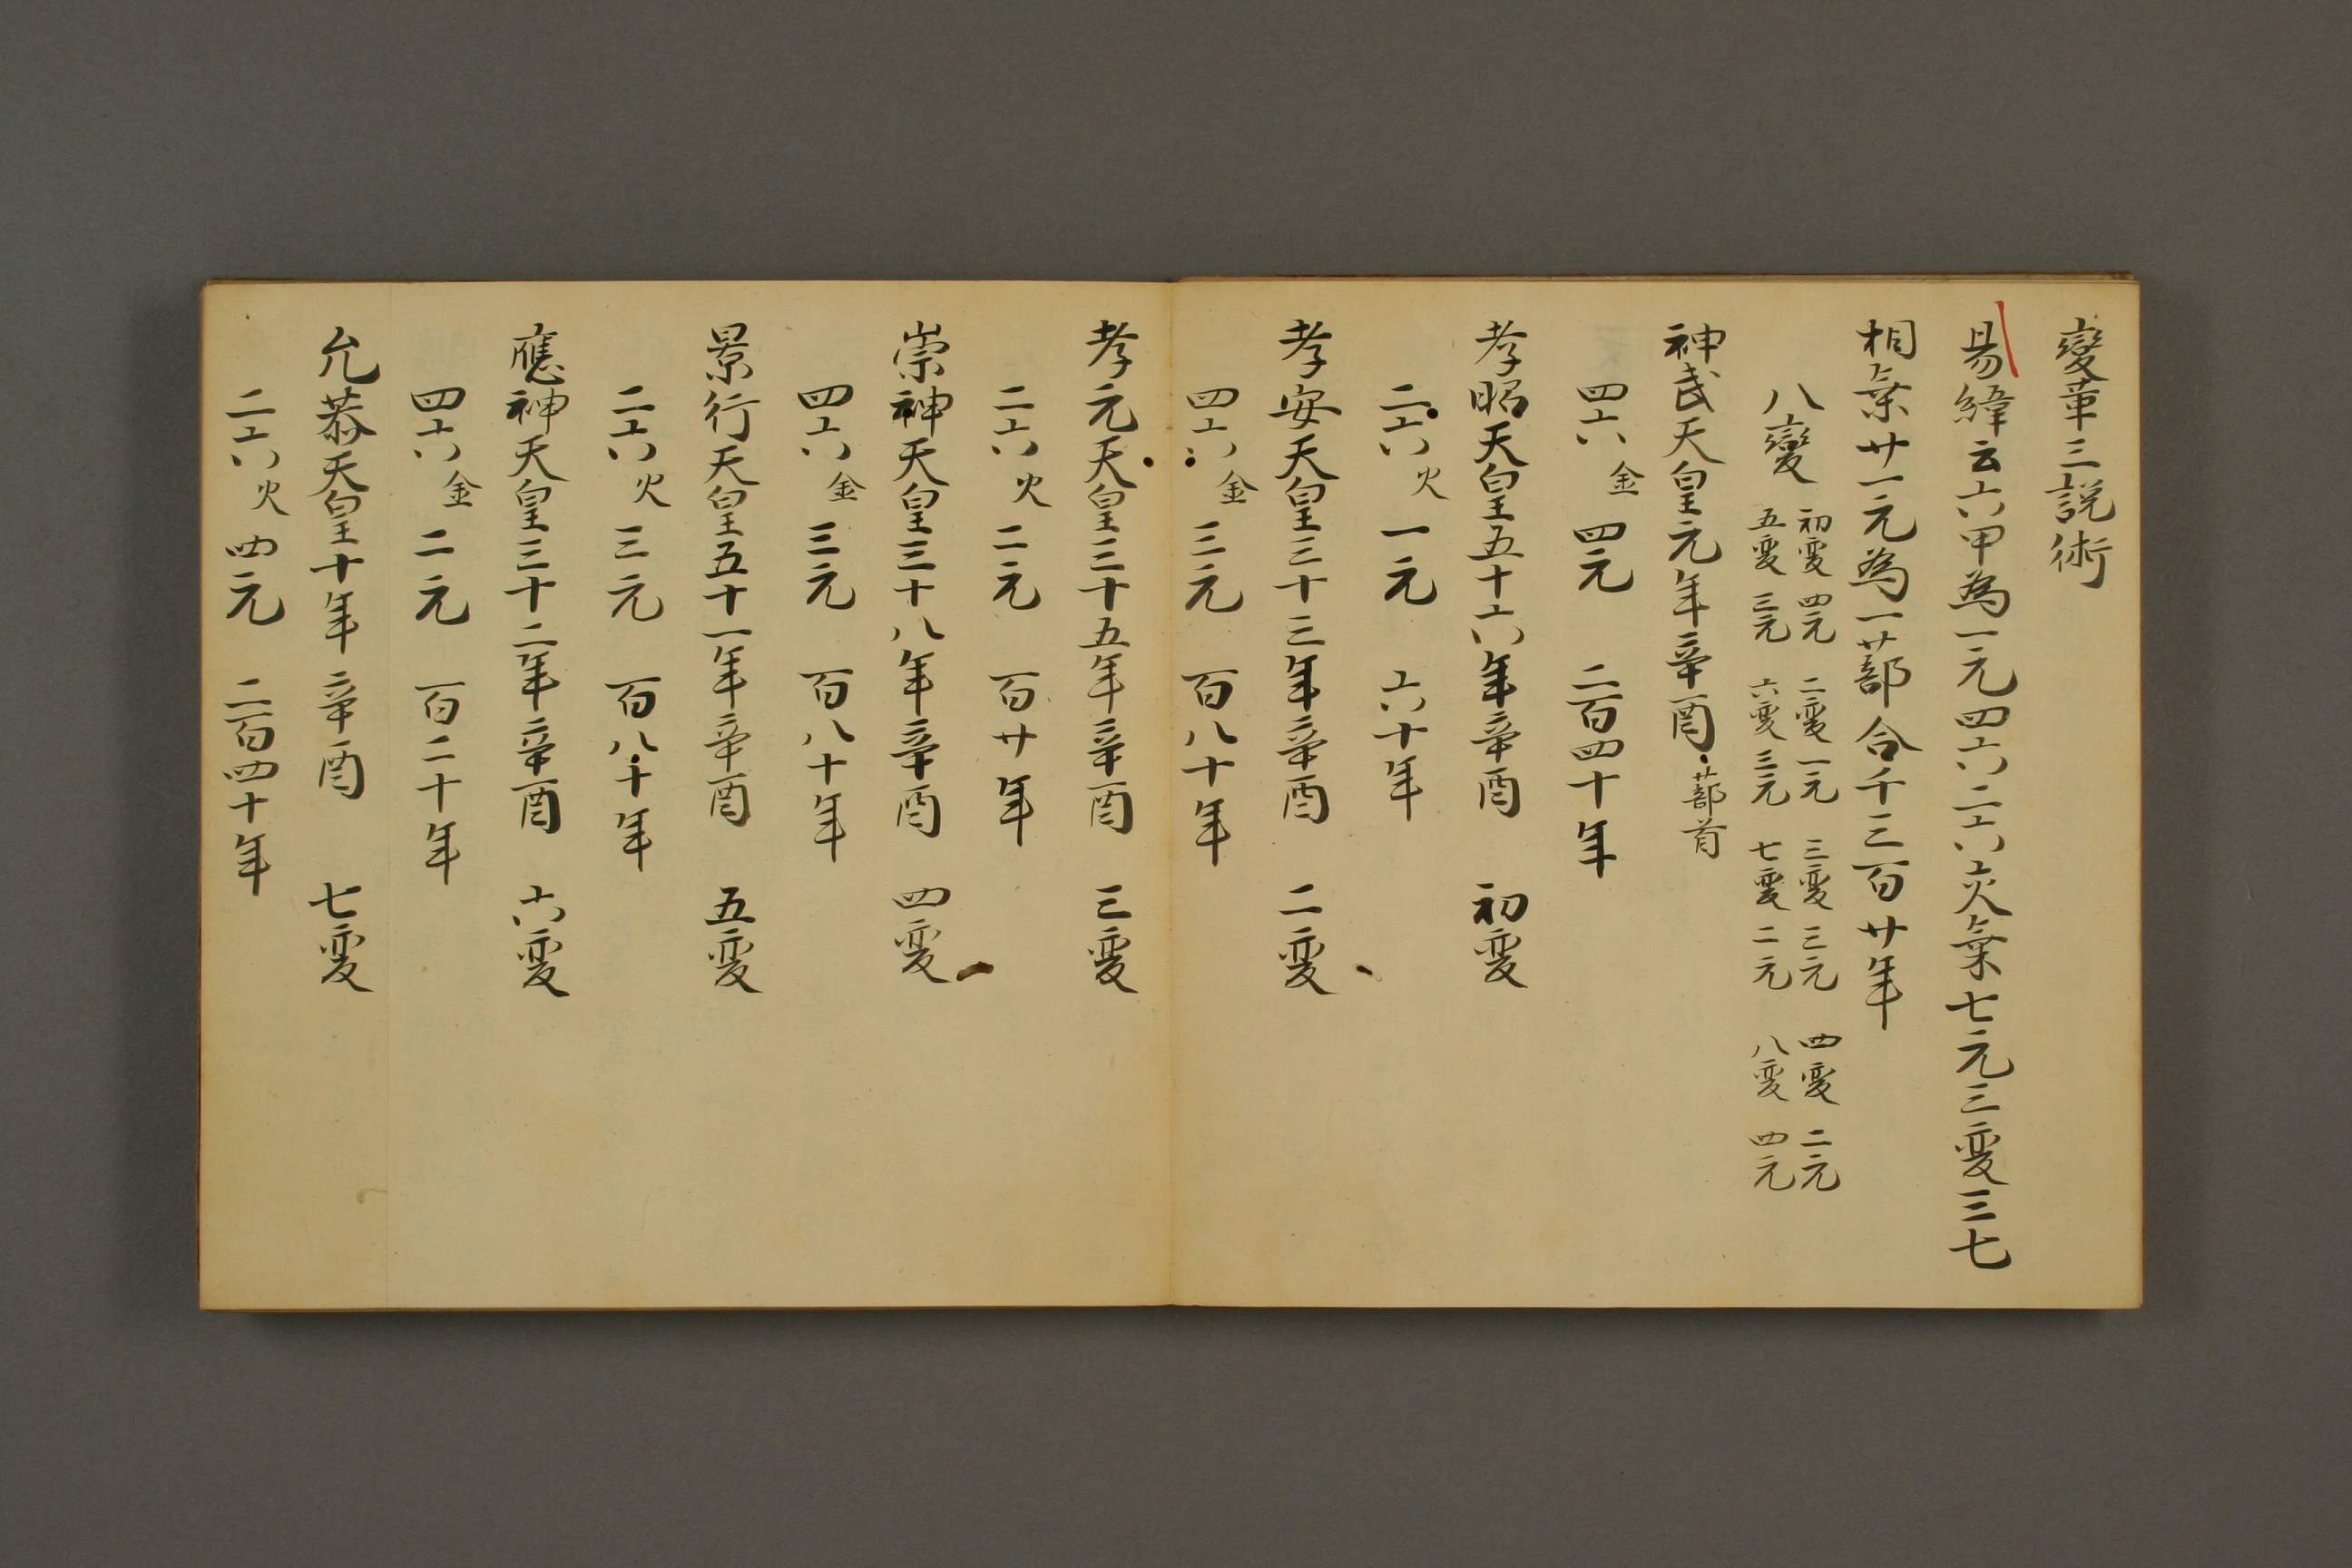 變革三説術
易緯云六甲為一元四六二六交乗七元三変三七
相乗廿一元為一蔀合千三百廿年
八變 初変四元 二変一元 三変三元 四変二元
五変三元 六変三元 七変二元 八変四元
神武天皇元年辛酉 蔀首
四六金 四元 二百四十年
孝昭天皇五十六年辛酉 初変
二六火 一元 六十年
孝安天皇三十三年辛酉 二変
四六金 三元 百八十年
孝元天皇三十五年辛酉 三変
二六火 二元 百廿年
崇神天皇三十八年辛酉 四変
四六金 三元 百八十年
景行天皇五十一年辛酉 五変
二六火 三元 百八十年
應神天皇三十二年辛酉 六変
四六金 二元 百二十年
允恭天皇十年辛酉 七変
二六火 四元 二百四十年